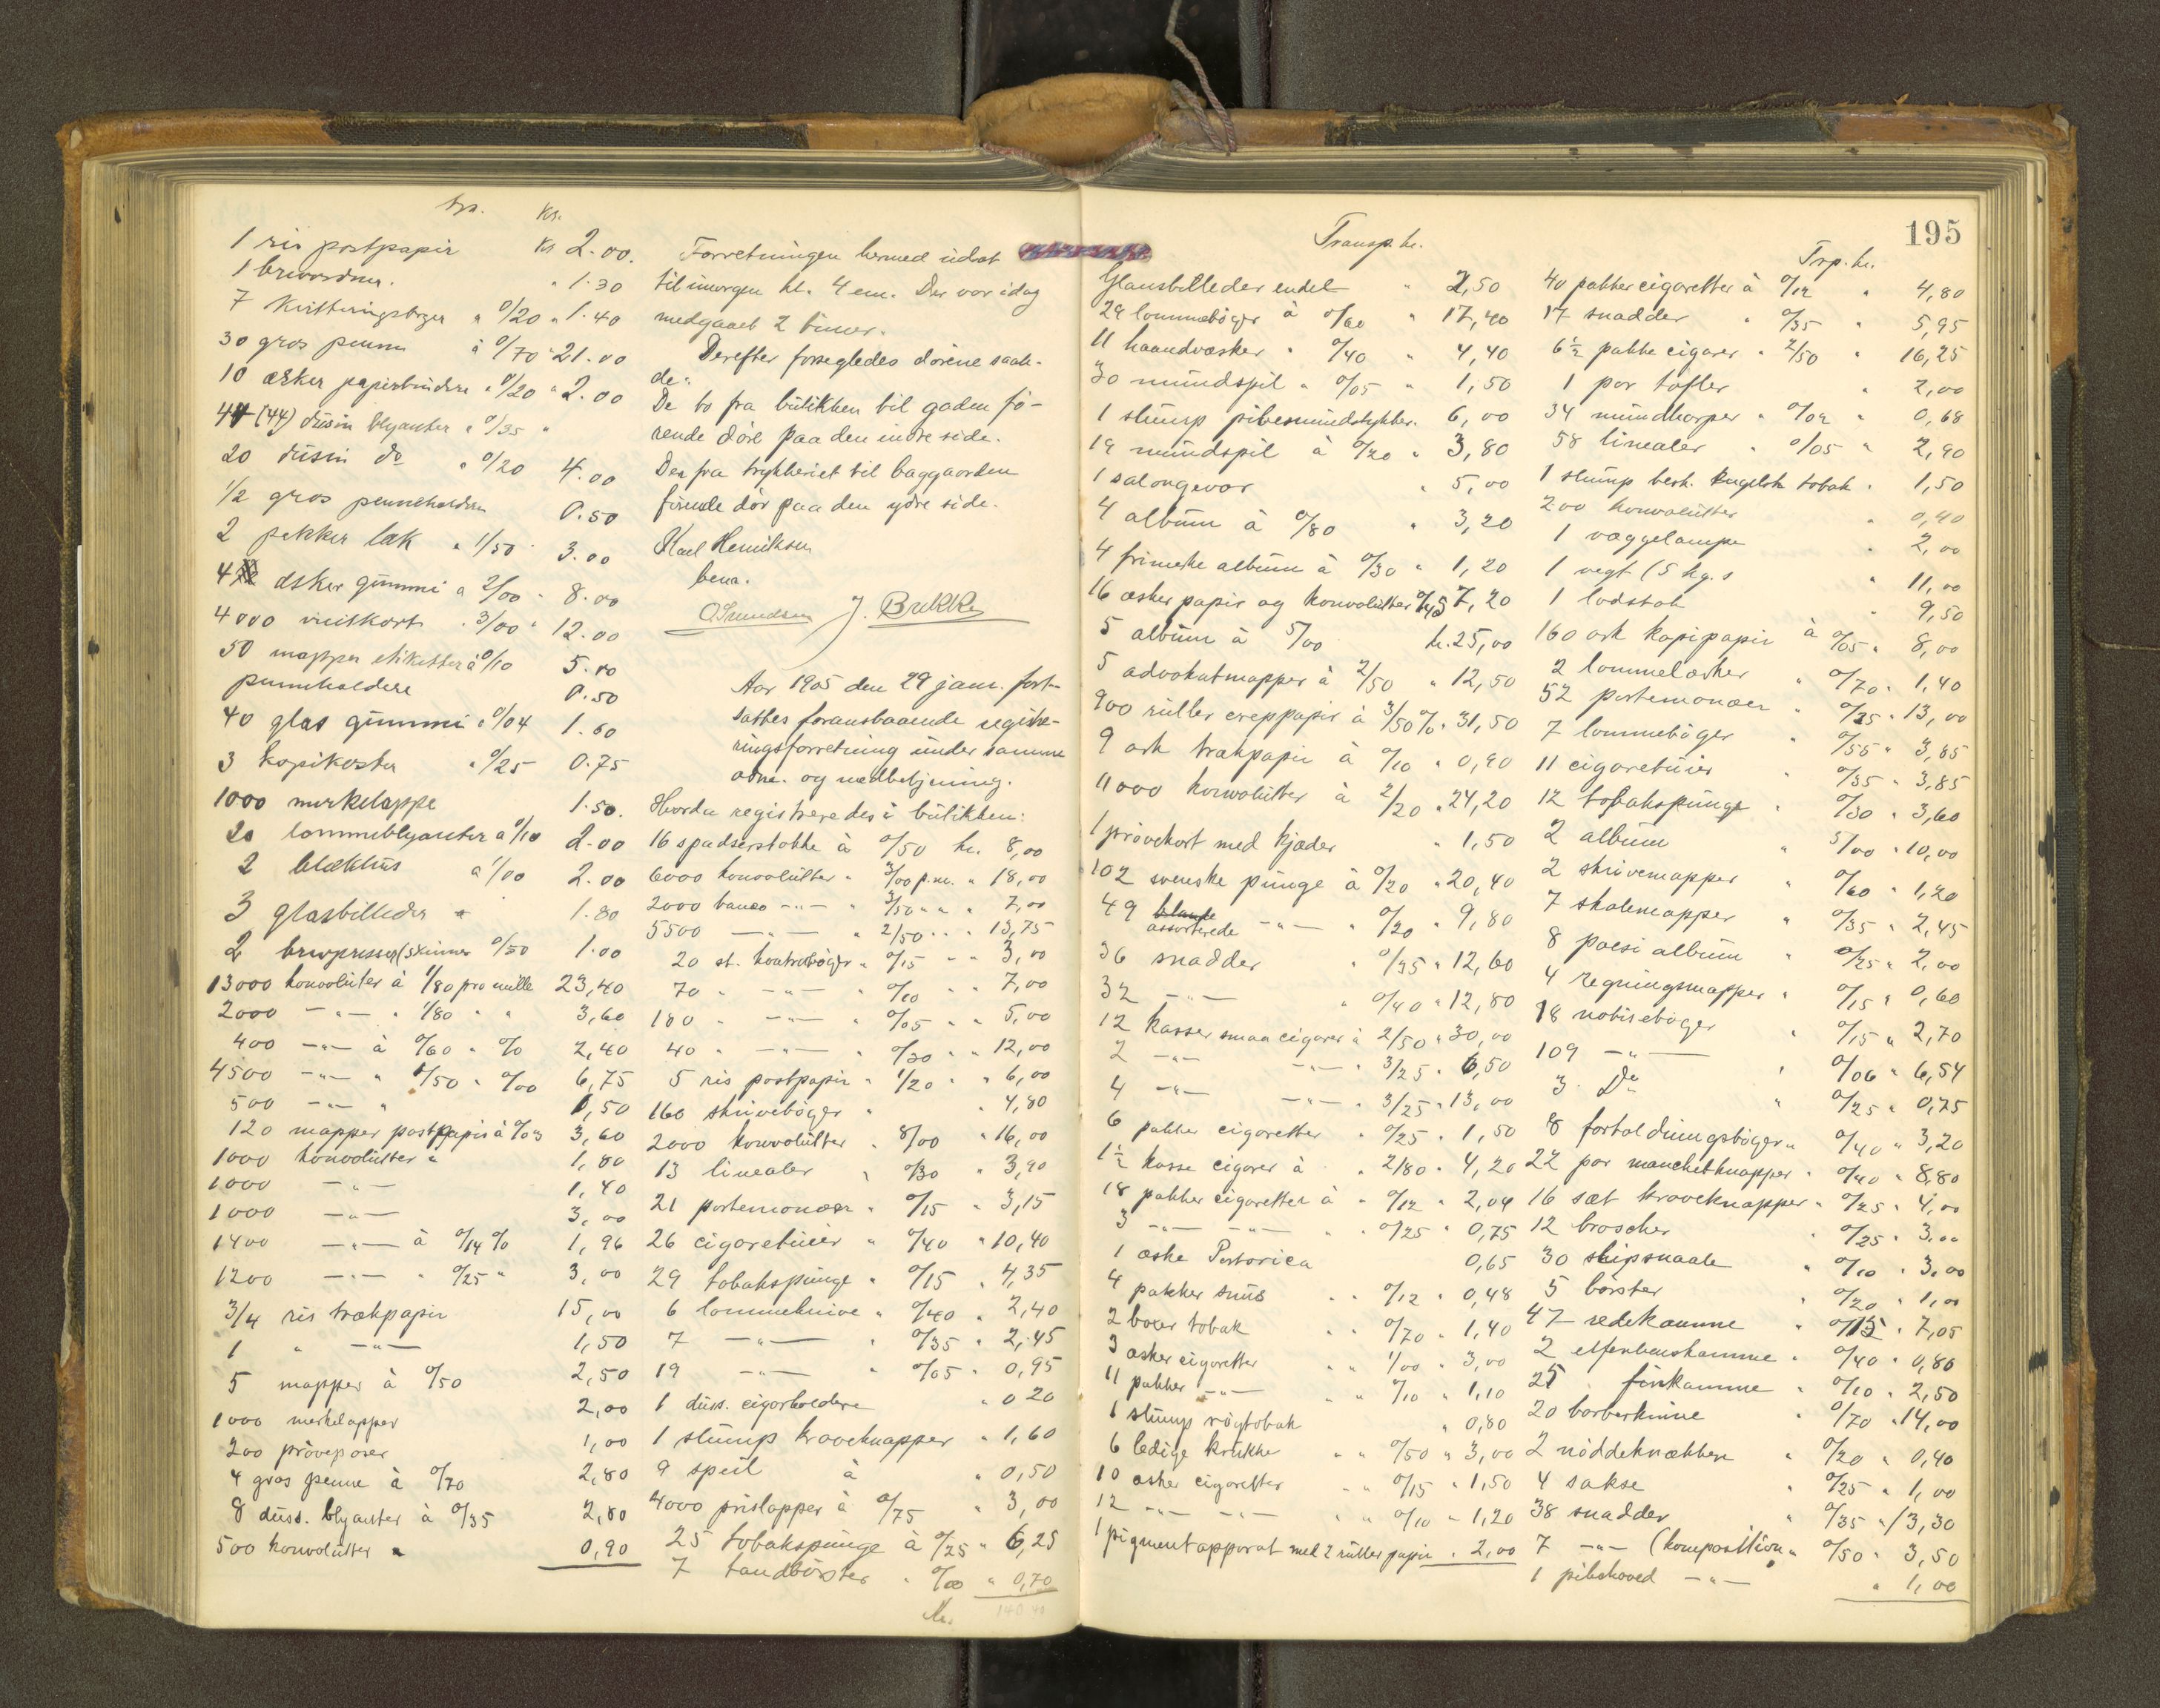 trp. kr.
1 ris postpapir kr 2.00.
1 brevordner. " 1.30
7 Kvitteringsbøger a 0/20 " 1.40
30 gros penne à 0/70 " 21.00
10 æsker papirbindere " 0/20 " 2.00
44 (44) düsin blyanter " 0/35 "
20 düsin do " 0/20 4.00
1/2 gros penneholdere 0.50
2 pakker lak " 1/50 3.00
4 æsker gümmi a 2/00 " 8.00
4000 visitkort " 3/00 " 12.00
50 mapper etiketter à 0/10 5.00
penneholdere 0.50
40 glas gümmi " 0/04 1.60
3 Kopikoster " 0/25 0.75
1000 merkelappe 1.50.
20 lommeblyanter a 0/10 2.00
2 blækhüs a 1/00 2.00
3 glasbilleder 1.80
2 brevpresser (skinner 0/50 1.00
13000 konvolüter à 1/80 pro mille 23,40
2000 -"- " 1/80 " " 3,60
400 -"- à 0/60 " % 2,40
4500 -"- " 1/50 " 0/00 6,75
500 -"- " 1,50
120 mapper postpapir à 0/03 3,60
1000 konvolütter " 1,80
1000 -"- 1,40
1000 -"- 3,00
1400 -"- à 0/14 % 1,96
1200 -"- " 0/25 " 3,00
3/4 ris trækpapir 15,00
1 " -"- 1,50
5 mapper à 0/50 2,50
1000 merkelapper 2,00
200 prøveposer 1,00
4 gros penne à 0/70 2,80
8 düss. blyanter à 0/35 2,80
500 konvolütter " 0,90
Forretningen hermed üdsat
til imorgen kl. 4 em. Der var idag
medgaaet 2 timer.
Derefter forsegledes dørene saale-
de:
De to fra bütikken til gaden fø-
rende døre paa den indre side.
Den fra trykkeriet til baggaarden
førende dør paa den ydre side.
Karl Henriksen
bem.
J. Brekke
Aar 1905 den 29 jan. fort-
sattes foranstaaende registre-
ringsforretning ünder samme
adm. og medbetjening.
Hvorda registreredes i bütikken:
16 spadserstokke à 0/50 kr. 8,00
6000 konvolütter " 3/00 p.m. " 18,00
2000 banco -"- " 3/50 " " " 7,00
5500 -"- " 2/50 " " " 13,75
20 st. kontrabøger " 0/15 " " 3,00
70 " -"- " 0/10 " " 7,00
100 " -"- " 0/05 " " 5,00
40 " -"- " 0/30 " " 12,00
5 ris postpapir " 1/20 " " 6,00
160 skrivebøger " " 4,80
2000 konvolütter " 8/00 " 16,00
13 linealer " 0/30 " 3,90
21 portemonæer " 0/15 " 3,15
26 cigaretüier " 0/40 " 10,40
29 tobakspünge " 0/15 " 4,35
6 lommeknive " 0/40 " 2,40
7 -"- " 0/35 " 2,45
19 -"- " 0/05 " 0,95
1 düss. cigarholdere " 0 20
1 stümp kraveknapper " 1,60
9 speil à " 0,50
4000 prislapper à 0/75 " 3,00
25 tobakspünge à 0/25 " 6,25
7 tandbørster " 0/10 " 0,70
Kr. 140 40
195
Transp. kr.
Glansbilleder endel " 2,50
29 lommebøger à 0/60 " 17,40
11 haandvæsker " 0/40 " 4,40
30 mündspil " 0/05 " 1,50
1 stümp pibemündstykker. 6,00
19 mündspil à 0/20 " 3,80
1 salongevær " 5,00
4 albüm à 0/80 " 3,20
4 frimerke albüm à 0/30 " 1,20
16 æsker papir og konvolütter 0/45 7,20
5 albüm à 5/00 kr. 25,00
5 advokatmapper à 2/50 " 12,50
900 rüller creppapir à 3/50 % " 31,50
9 ark trækpapir à 0/10 " 0,90
11000 konvolütter à 2/20 " 24,20
1 prøvekort med kjæder " 1,50
102 svenske pünge à 0/20 " 20,40
49 assorterede -"- " 0/20 " 9,80
36 snadder " 0/35 " 12,60
32 -"- " 0/40 " 12,80
12 kasser smaa cigarer à 2/50 " 30,00
2 -"- -"- " 3/25 " 6,50
4 -"- -"- " 3/25 " 13,00
6 pakker cigaretter " 0/25 " 1,50
1 1/2 kasse cigarer à " 2/80 " 4,20
18 pakker cigaretter à " 0/12 " 2,04
3 -"- -"- " " 0/25 " 0,75
1 æske Portorica 0,65
4 pakker snüs " " 0/12 " 0,48
2 boxer tobak " " 0/70 " 1,40
3 æsker cigaretter " " 1/00 " 3,00
11 pakker -"- " " 0/10 " 1,10
1 stümp røgtobak " 0,80
6 ledige krükker " " 0/50 " 3,00
10 æsker cigaretter " " 0/15 " 1,50
12 -"- -"- " " 0/10 " 1,20
1 pigmentapparat med 2 rüller papir " 2,00
Trp. kr.
40 pakker cigaretter à 0/12 " 4,80
17 snadder " 0/35 " 5,95
6 1/2 pakke cigarer " 2/50 " 16,25
1 par tøfler " 2,00
34 mündharper " 0/02 " 0,68
58 linealer " 0/05 " 2,90
1 stümp besk. tobak " 1,50
200 konvolütter " 0,40
1 væggelampe " 2,00
1 vegt (5 kg.) " 11,00
1 lodstok " 9,50
160 ark kopipapir à 0/05 " 8,00
2 lommelærker " 0/70 " 1,40
52 portemonæer " 0/25 " 13,00
7 lommebøger " 0/55 " 3,85
11 cigaretüier " 0/35 " 3,85
12 tobakspünge " 0/30 " 3,60
2 albüm " 5/00 " 10,00
2 skrivemapper " 0/60 " 1,20
7 skolemapper " 0/35 " 2,45
8 poesi albüm " 0/25 " 2,00
4 regningsmapper " 0/15 " 0,60
18 notisebøger " 0/15 " 2,70
109 -"- " 0/06 " 6,54
3 Do " 0/25 " 0,75
8 fortoldningsbøger " 0/40 " 3,20
22 par manchetknapper " 0/40 " 8,80
16 sæt kraveknapper " 0/25 " 4,00
12 broscher " 0/25 " 3,00
30 slipsnaale " 0/10 " 3,00
5 børster " 0/20 " 1,00
47 redekamme " 0/15 " 7,05
2 elfenbenskamme " 0/40 " 0,80
25 finkamme " 0/10 " 2,50
20 barberknive " 0/70 " 14,00
2 nøddeknækkere " 0/20 " 0,40
4 sakse " 0/25 " 1,00
38 snadder " 0/35 " 13,30
7 -"- (komposition " 0/50 " 3,50
1 pibehoved -"- " 1,00